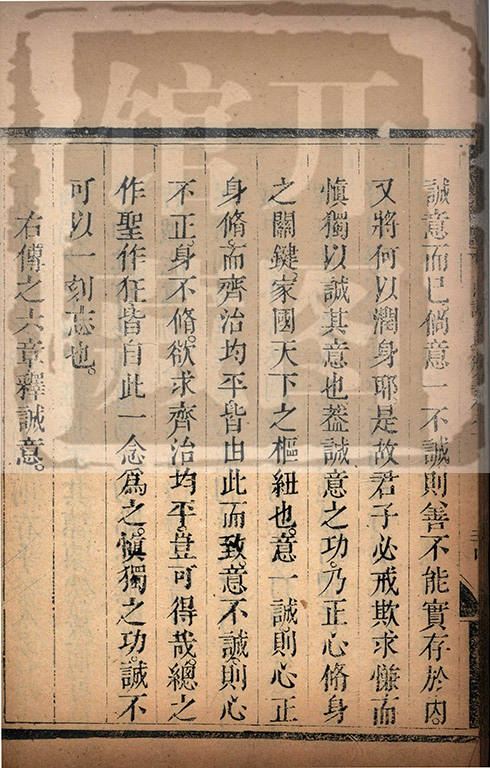 誠意而已倘意一不誠則善不能實存於内
又將何以潤身耶是故君子必戒欺求慊而
慎獨以誠其意也葢誠意之功乃正心脩身
之關鍵家國天下之樞紐也意一誠則心正
身脩而齊治均平皆由此而致意不誠則心
不正身不脩欲求齊治均平豈可得哉總之
作聖作狂皆自此一念爲之慎獨之功誠不
可以一刻忘也
右傳之六章釋誠意